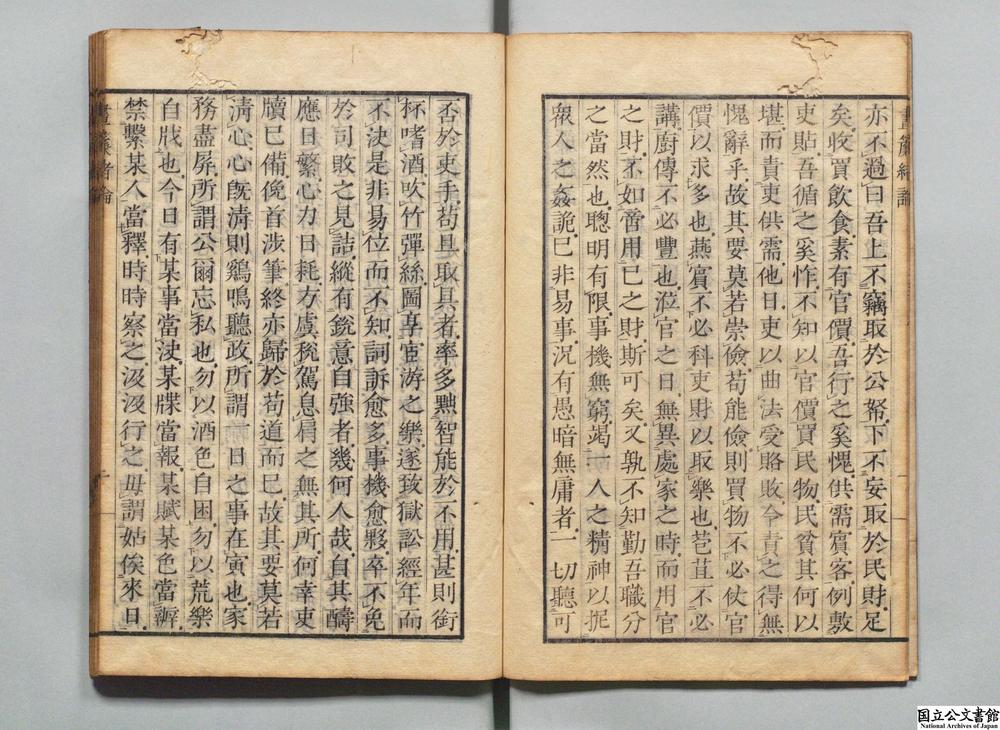 亦不過曰吾上不竊取於公帑下不妄取於民財足
矣收買飲食素有官價吾行之奚愧供需賓客例敷
吏貼吾循之奚怍不知以官價買民物民貧其何以
堪而責吏供需他日吏以曲法受賂敗今責之得無
愧辭乎故其要莫若崇儉苟能儉則買物不必仗官
價以求多也燕賓不必科吏財以取樂也苞苴不必
講廚傳不必豐也涖官之日無異處家之時而用官
之財不如嗇用己之財斯可矣又孰不知勤吾職分
之當然也聰明有限事機無窮竭一人之精神以扼
衆人之姦詭已非易事況有愚暗無庸者一切聽可
否於吏手苟且取具者率多黠智能於不用甚則銜
杯嗜酒吹竹彈絲圖享宦游之樂遂致獄訟經年而
不決是非易位而不知詞訴愈多事機愈夥卒不免
於司敗之見詰縱有銳意自強者幾何人哉自其醻
應日繁心力日耗方虞稅駕息肩之無其所何幸吏
牘已備俛首涉筆終亦歸於苟道而已故其要莫若
清心心旣清則鷄鳴聽政所謂一日之事在寅也家
務盡屏所謂公爾忘私也勿以酒色自困勿以荒樂
自戕也今日有某事當決某牒當報某賦某色當辦
禁繫某人當釋時時察之汲汲行之毋謂姑俟來日
晝簾緒論
晝簾緒論
国立公文書館
National Archives of Japan